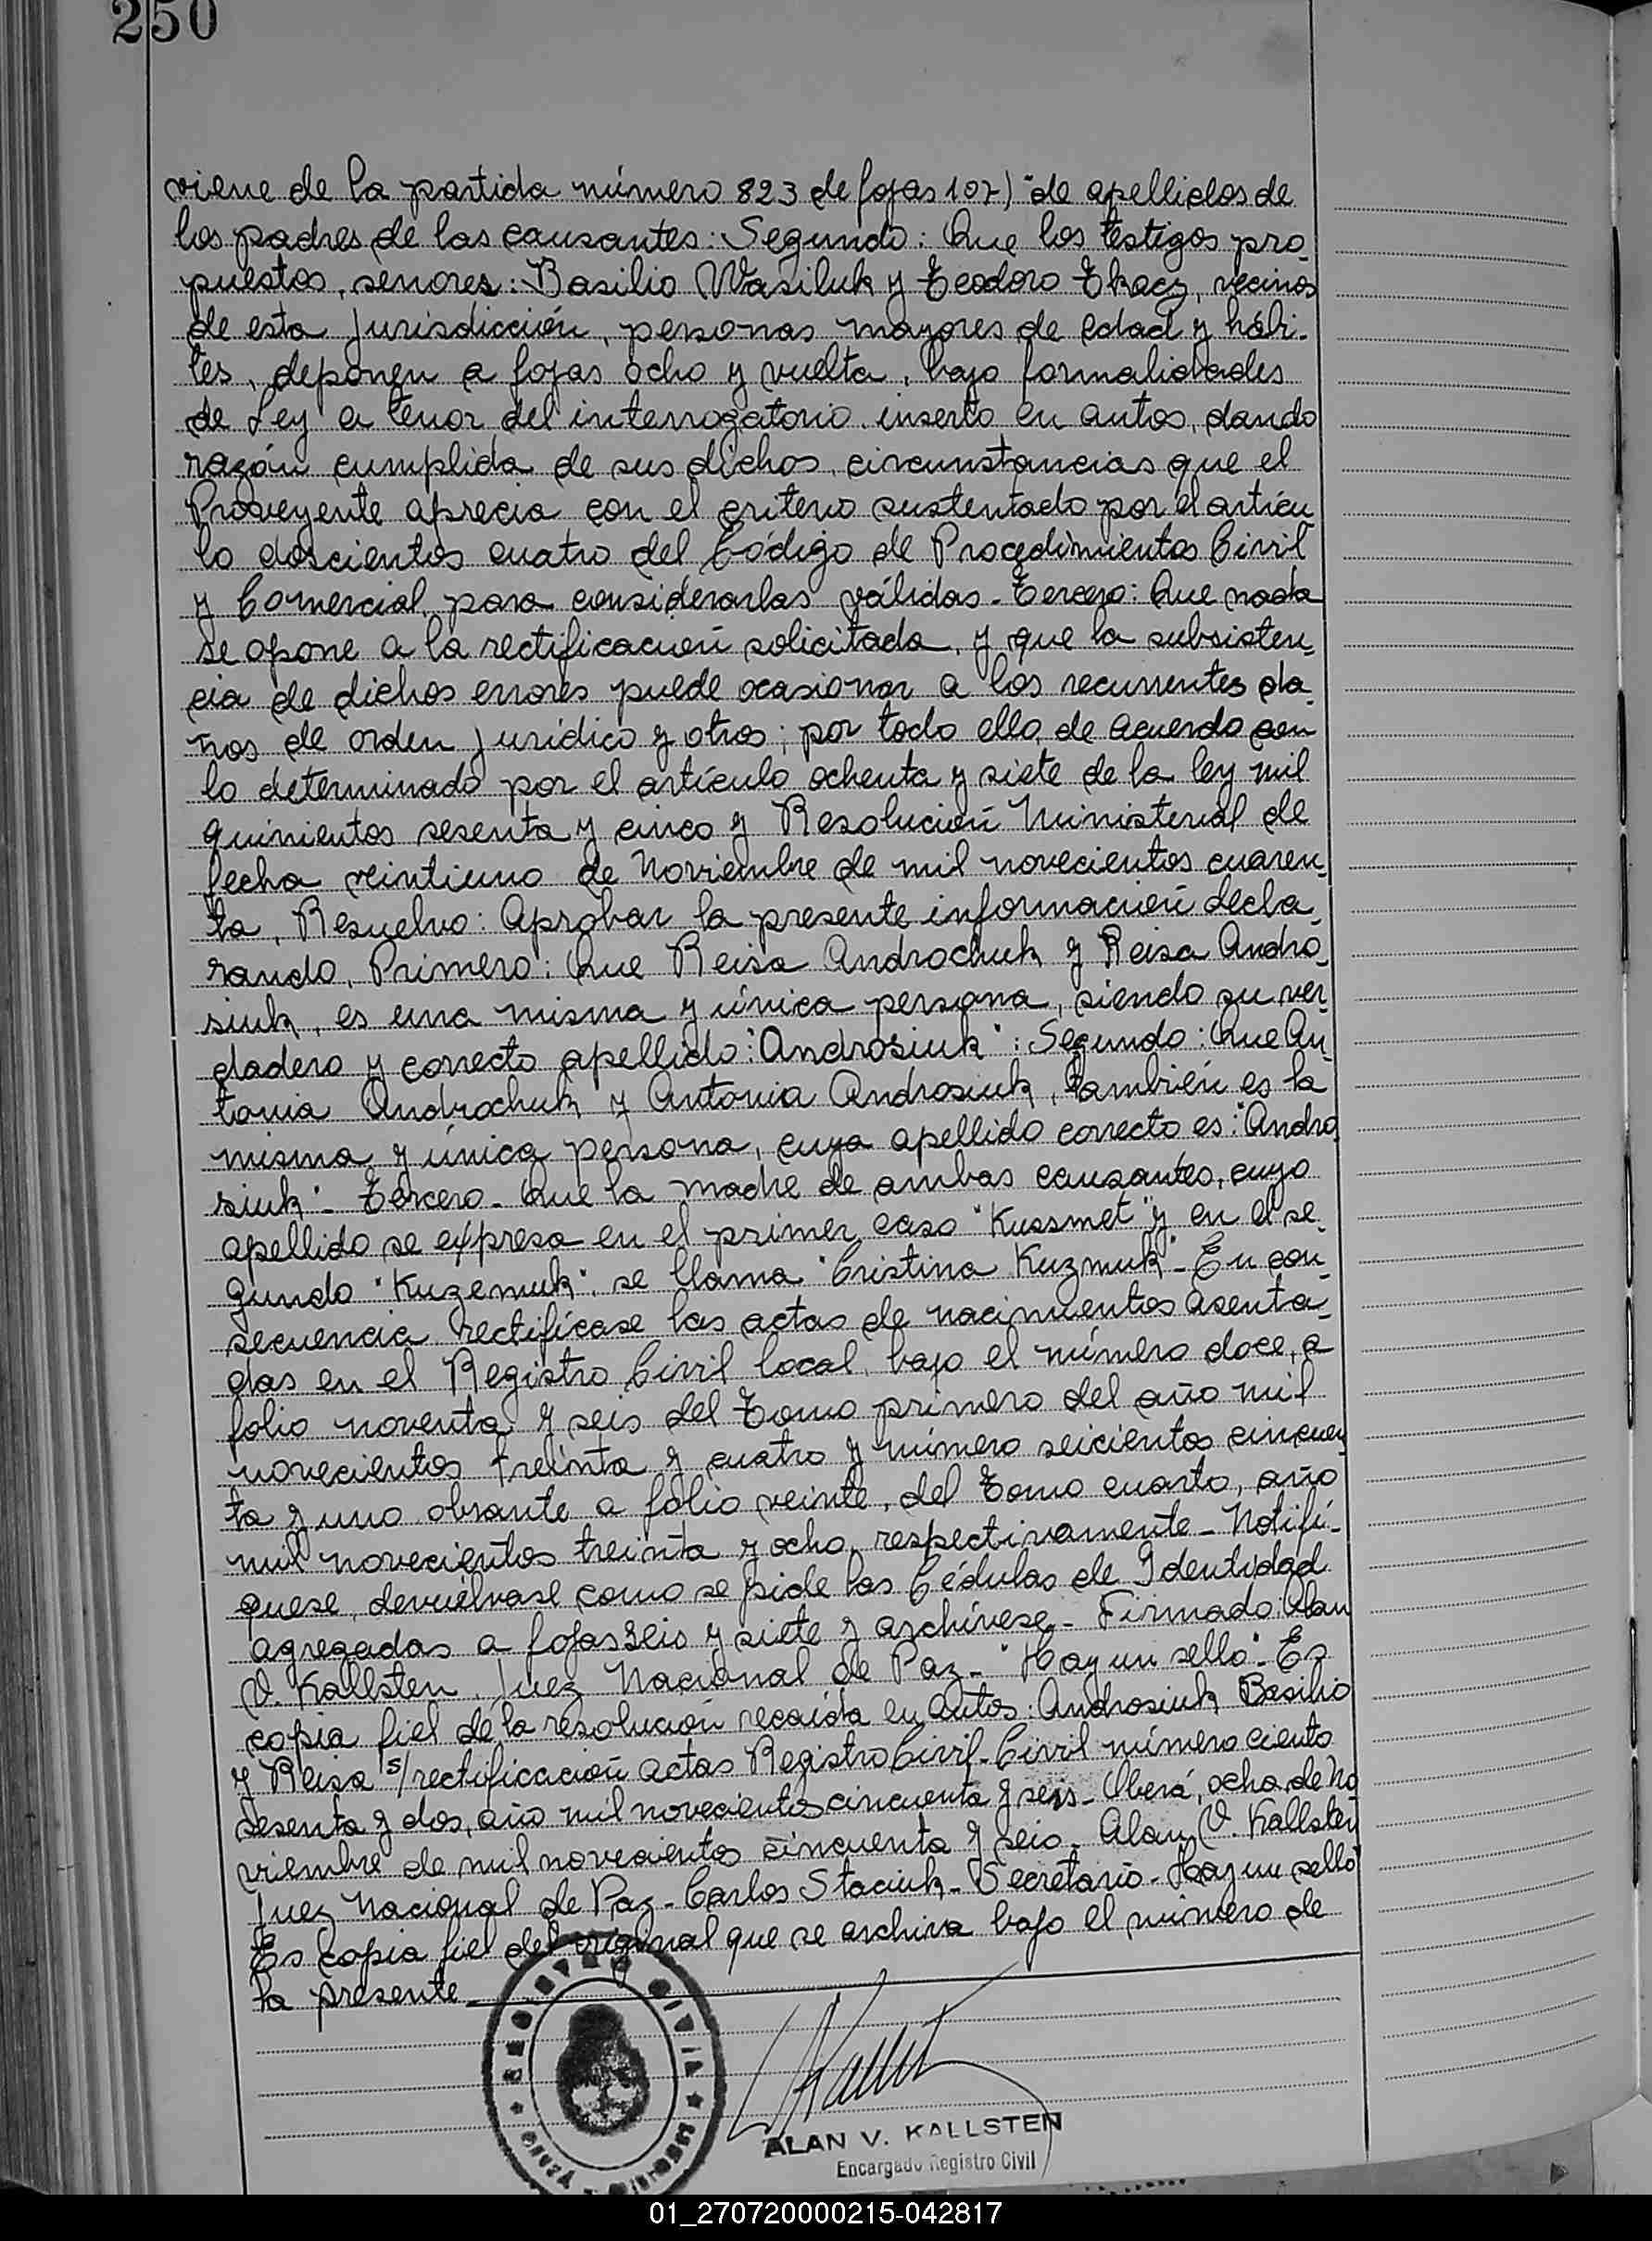 250
viene de la partida número 823 de fojas 107) "de apellidos de
los padres de las causantes: Segundo: Que los testigos pro-
puestos, senores: Basilio Wasiluk y Teodoro Tkacz, vecinos
de esta jurisdicción, personas mayores de edad y hábi-
les, deponen a fojas ocho y vuelta, bajo formalidades
de Ley a tenor del interrogatorio inserto en autos, dando
razón cumplida de sus dichos, circunstancias que el
Proveyente aprecia con el criterio sustentado por el artícu-
lo doscientos cuatro del Código de Procedimientos Civil
y Comercial, para considerarlas válidas - Tercero: Que nada
se opone a la rectificación solicitada, y que la subsisten-
cia de dichos errores puede ocasionar a los recurrentes da-
ños de orden jurídico y otros; por todo ello, de acuerdo con
lo determinado por el artículo ochenta y siete de la ley mil
quinientos sesenta y cinco y Resolución Ministerial de
fecha veintiuno de Noviembre de mil novecientos cuaren-
ta, Resuelvo: Aprobar la presente información decla-
rando, Primero: Que Reisa Androchuk y Reisa Andro-
siuk, es una misma y única persona, siendo su ver-
dadero y correcto apellido: "Androsiuk": Segundo: Que An-
tonia Androchuk y Antonia Androsiuk, también es la
misma y única persona, cuya apellido correcto es: "Andro
siuk" - Tercero - Que la madre de ambas causantes, cuyo
apellido se expresa en el primer caso "Kussmet" y en el se-
gundo "Kuzemuk", se llama "Cristina Kuzmuk" - En con-
secuencia rectifícase las actas de nacimientos asenta-
das en el Registro Civil local, bajo el número doce, a
folio noventa y seis del Tomo primero del año mil
novecientos treinta y cuatro y número seicientos cincuen
ta y uno obrante a folio veinte, del Tomo cuarto, año
mil novecientos treinta y ocho, respectivamente - Notifí-
quese, devuélvase como se pide las Cédulas de Identidad
agregadas a fojas seis y siete y archívese - Firmado: Alan
V. Kallsten, Juez Nacional de Paz - "Hay un sello" - Es
copia fiel de la resolución recaída en autos: Androsiuk Basilio
y Reisa s/rectificación actas Registro Civil - Civil número ciento
sesenta y dos, año mil novecientos cincuenta y seis - Oberá, ocho de No
viembre de mil novecientos cincuenta y seis - Alan V. Kallsten
Juez Nacional de Paz - Carlos Staciuk - Secretario - Hay un sello"
Es copia fiel del original que se archiva bajo el número de
la presente
REGISTRO CIVIL
OBERÁ - MISIONES
ALAN V. KALLSTEN
Encargado Registro Civil
01_270720000215-042817